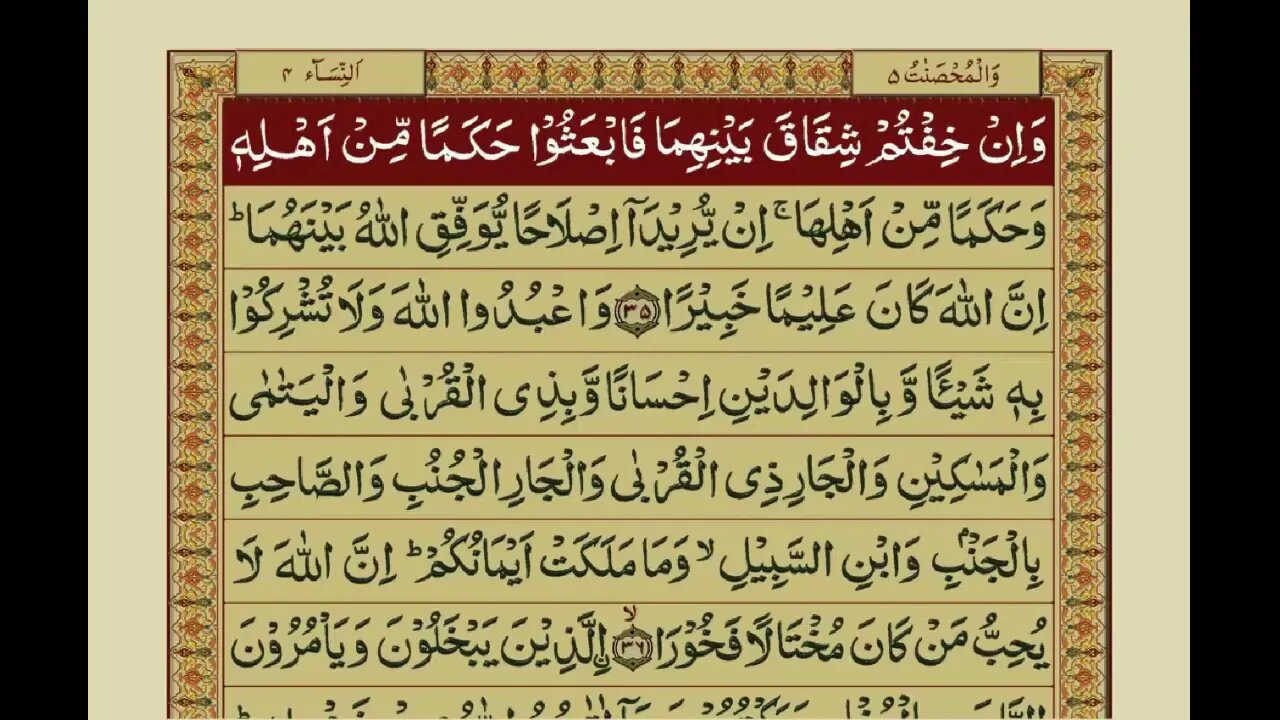 وَالْمُحْصَنٰتُ ۵
اَلنِّسَآء ۴
وَاِنْ خِفْتُمْ شِقَاقَ بَيْنِهِمَا فَابْعَثُوْا حَكَمًا مِّنْ اَهْلِهٖ
وَحَكَمًا مِّنْ اَهْلِهَا ۚ اِنْ يُّرِيْدَاۤ اِصْلَاحًا يُّوَفِّقِ اللّٰهُ بَيْنَهُمَا ؕ
اِنَّ اللّٰهَ كَانَ عَلِيْمًا خَبِيْرًا ۝۳۵ وَاعْبُدُوا اللّٰهَ وَلَا تُشْرِكُوْا
بِهٖ شَيْـًٔا وَّ بِالْوَالِدَيْنِ اِحْسَانًا وَّ بِذِى الْقُرْبٰى وَالْيَتٰمٰى
وَالْمَسٰكِيْنِ وَالْجَارِ ذِى الْقُرْبٰى وَالْجَارِ الْجُنُبِ وَالصَّاحِبِ
بِالْجَنْۢبِ وَابْنِ السَّبِيْلِ ۙ وَمَا مَلَكَتْ اَيْمَانُكُمْ ؕ اِنَّ اللّٰهَ لَا
يُحِبُّ مَنْ كَانَ مُخْتَالًا فَخُوْرًا ۝۳۶ ۙ اۨلَّذِيْنَ يَبْخَلُوْنَ وَيَاْمُرُوْنَ